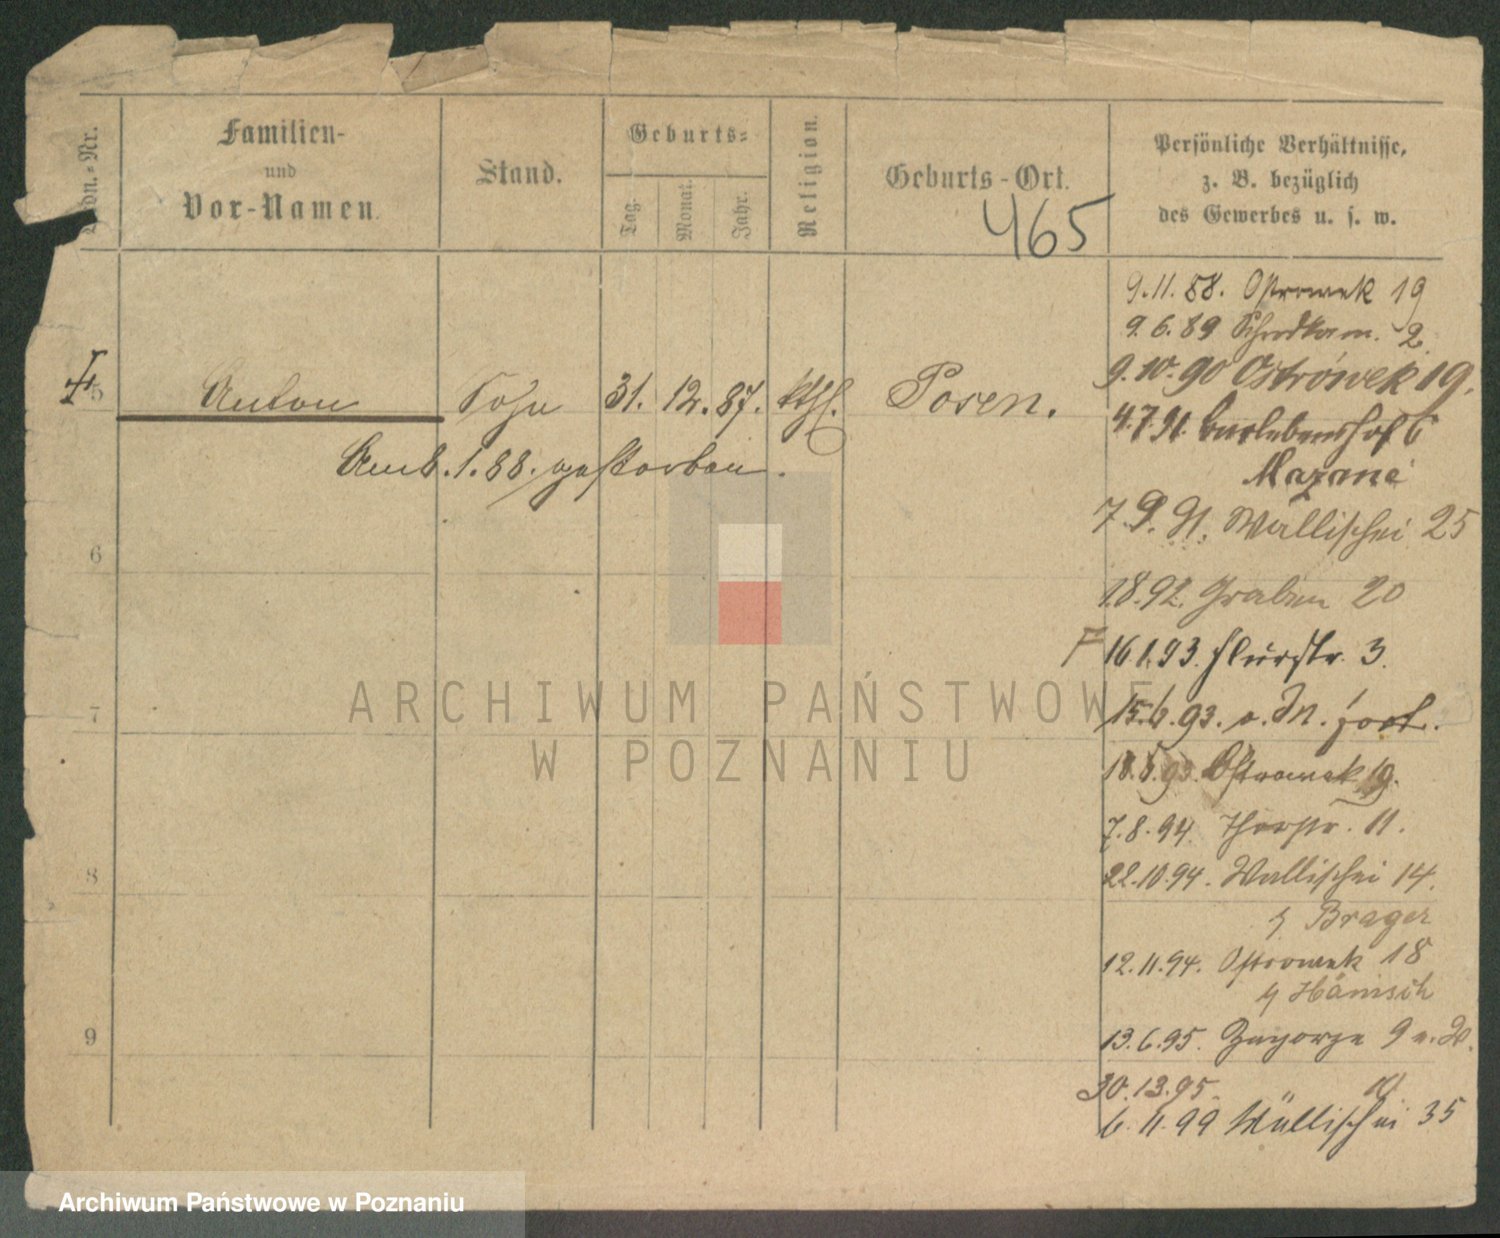 Familien-
und
Vor-Namen.
Stand.
Geburts-
Tag.
Monat.
Jahr.
Religion.
Geburts-Ort.
465
Persönliche Verhältnisse,
z. B. bezüglich
des Gewerbes u. s. w.
9.11.88. Ostrowek 19
9.6.89 Schrodkam. 2
9.10.90 Ostrówek 19.
5 Anton Sohn 31. 12. 87. kthl. Posen.
4.7.91. 6
Am 6.1.88. gestorben.
7.9.91. Wallischei 25
6
1.8.92. Graben 20
F 16.1.93. Flurstr. 3.
ARCHIWUM PAŃSTWOWE
7
15.6.93. fort.
W POZNANIU
18. 93. Ostrowek 19.
7.8.94. Thorstr. 11.
8
22.10.94. Wallischei 14.
Brager
12.11.94. Ostrowek 18
Hänisch
9
13.6.95. Zagorze 9
30. 95.
6.11.99 Wallischei 35
Archiwum Państwowe w Poznaniu